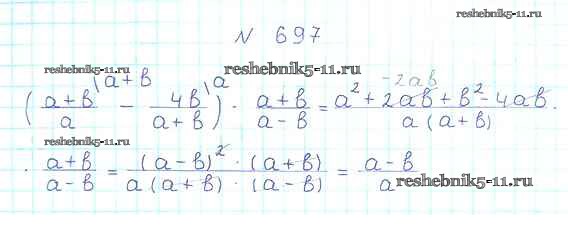 N 697
reshebnik5-11.ru
reshebnik5-11.ru
\a+b \a
reshebnik5-11.ru
-2ab
((a+b)/a - 4b/(a+b)) · (a+b)/(a-b) = (a² + 2ab + b² - 4ab)/(a(a+b)) ·
reshebnik5-11.ru
· (a+b)/(a-b) = ((a-b)² · (a+b))/(a(a+b) · (a-b)) = (a-b)/a
reshebnik5-11.ru